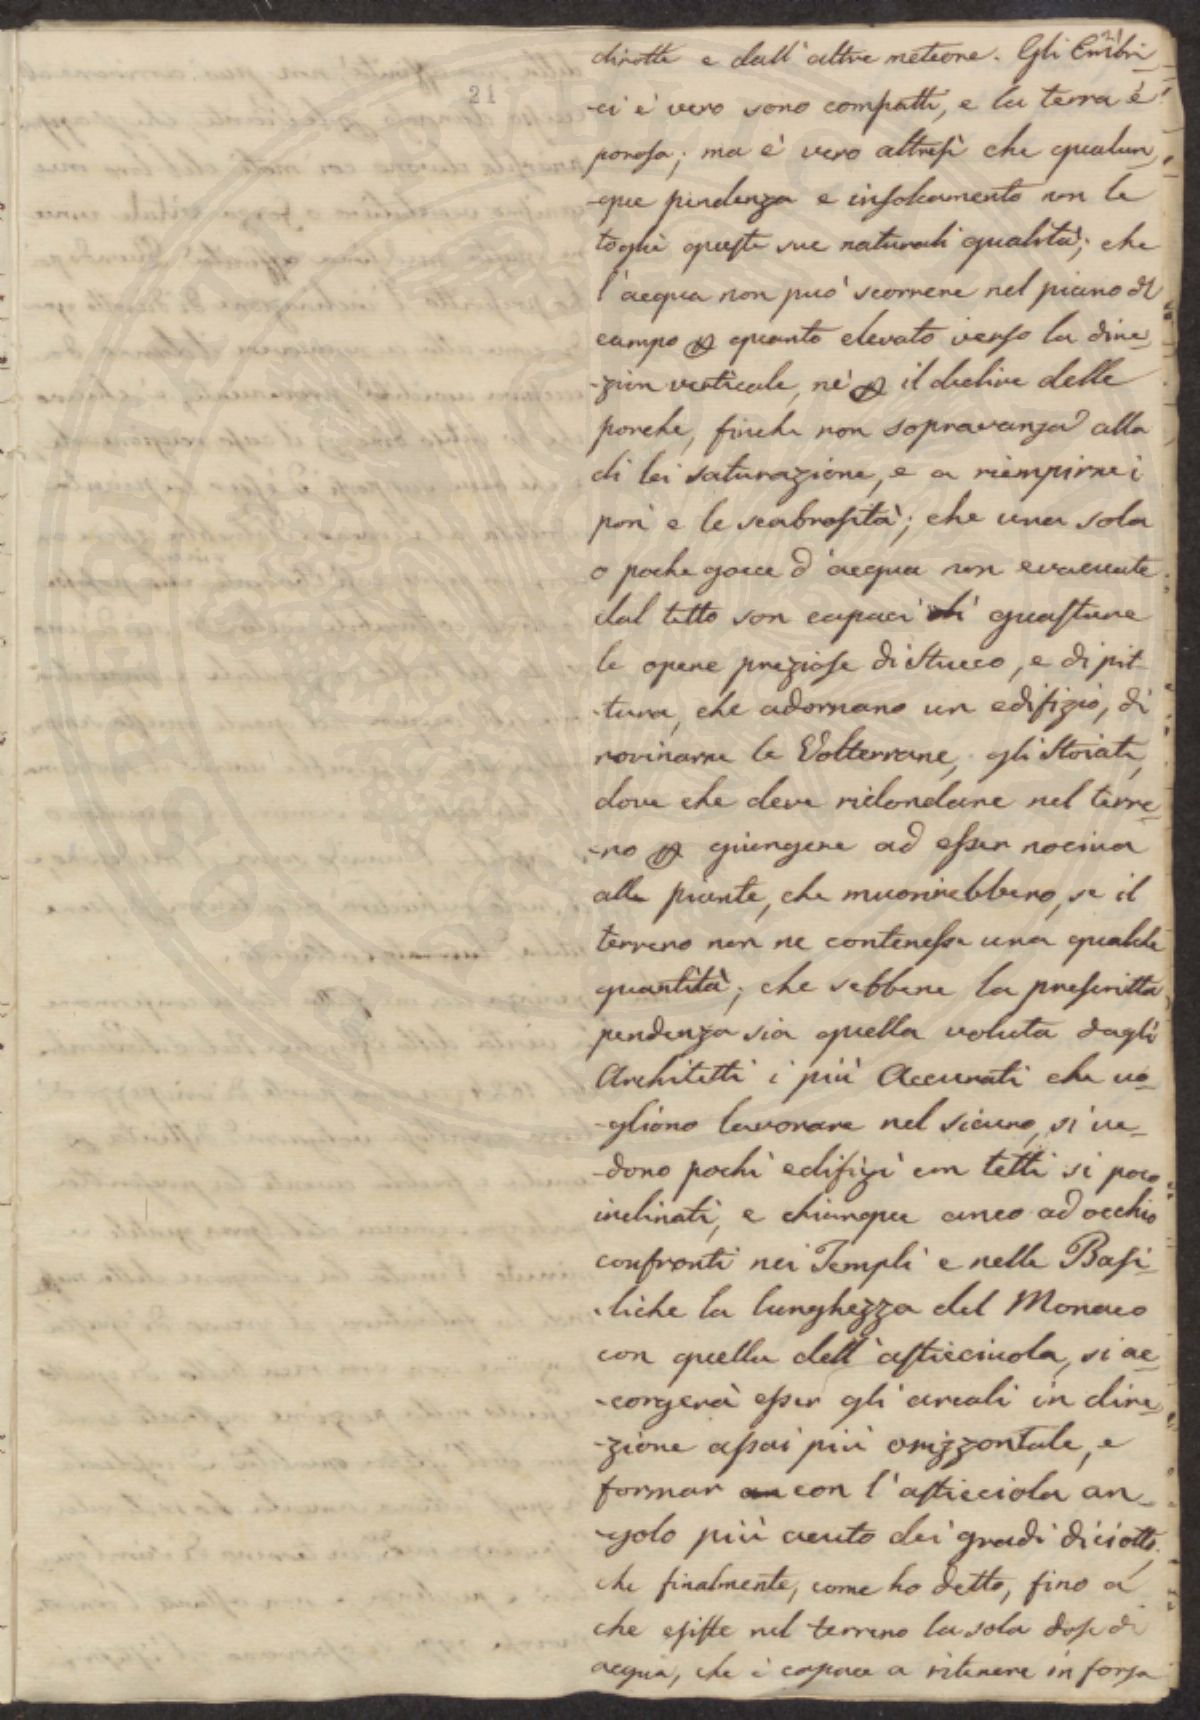 21
dirotte e dall'altre meteore. Gli Embri-
-ci è vero sono compatti, e la terra è
porosa; ma è vero altresì che qualun
-que pendenza e insolcamento non le
toglie queste sue naturali qualità; che
l'acqua non può scorrere nel piano di
campo quanto elevato verso la dire
-zion verticale, nè il declive delle
porche, finche non sopravanza alla
di lei saturazione, e a riempirne i
pori e le scabrosità; che una sola
o poche gocce d'acqua non evacuate
dal tetto son capaci di guastare
le opere preziose di stucco, e di pit-
-tura, che adornano un edifizio, di
rovinarne le Volterrane, gli Stoiati,
dove che deve ridondare nel terre-
-no giungere ad esser nociva
alle piante, che muorirebbero, se il
terreno non ne contenesse una qualche
quantità; che sebbene la prescritta
pendenza sia quella voluta dagli
Architetti i più Accurati che vo-
-gliono lavorare nel sicuro, si ve-
-dono pochi edifizi con tetti si poco
inclinati, e chiunque anco ad occhio
confronti nei Templi e nelle Basi-
-liche la lunghezza del Monaco
con quella dell'asticciuola, si ac-
-corgerà esser gli arcali in dire-
-zione assai più orizzontale, e
formar con l'asticciola an-
-golo più acuto dei gradi diciotto;
che finalmente, come ho detto, fino a
che esiste nel terreno la sola dose di
acqua, che è capace a ritenere in forza